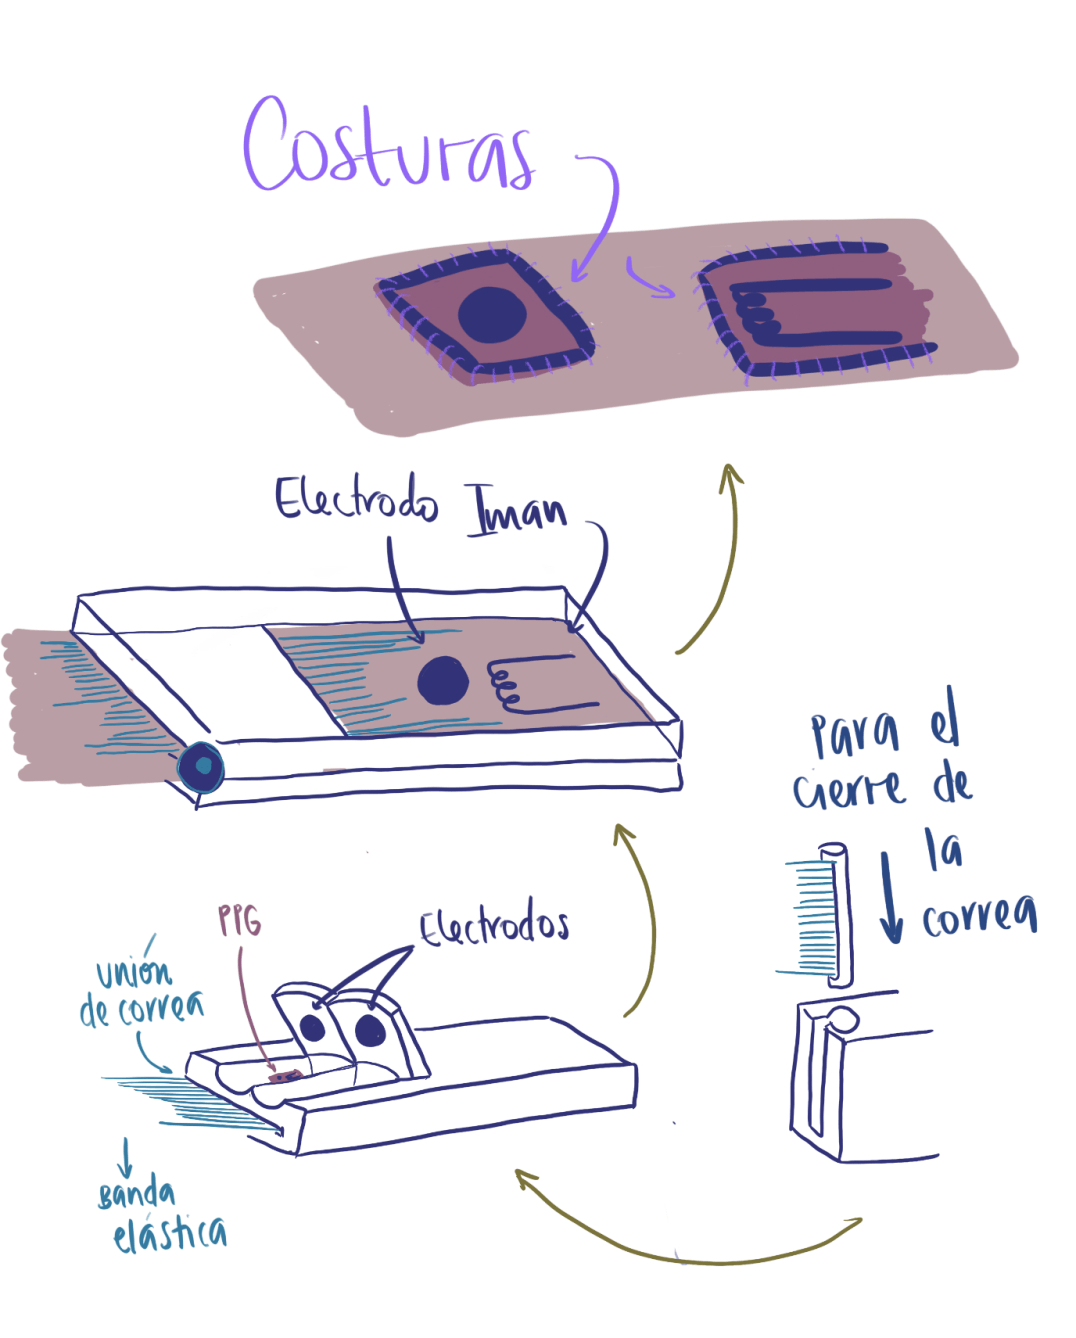 Costuras
Electrodo Iman
para el
cierre de
la
correa
PPG
Electrodos
unión
de correa
Banda
elástica